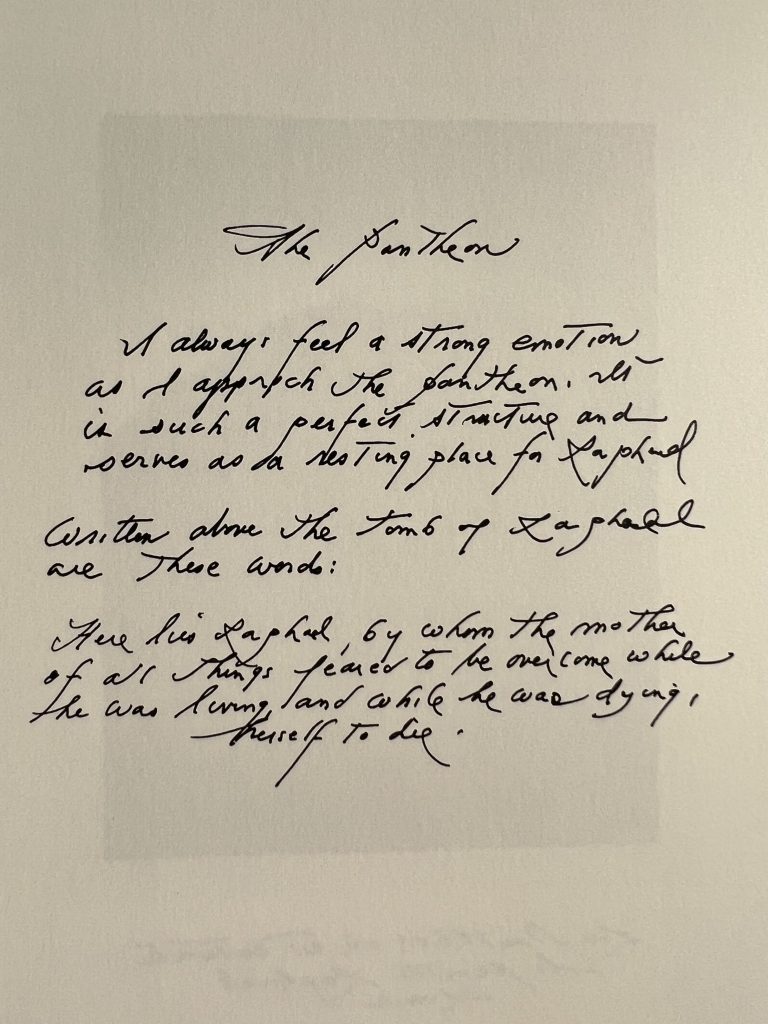 The Pantheon
I always feel a strong emotion
as I approach the Pantheon. It
is such a perfect structure and
serves as a resting place for Raphael
Written above the tomb of Raphael
are these words:
Here lies Raphael, by whom the mother
of all things feared to be overcome while
he was living, and while he was dying,
herself to die.